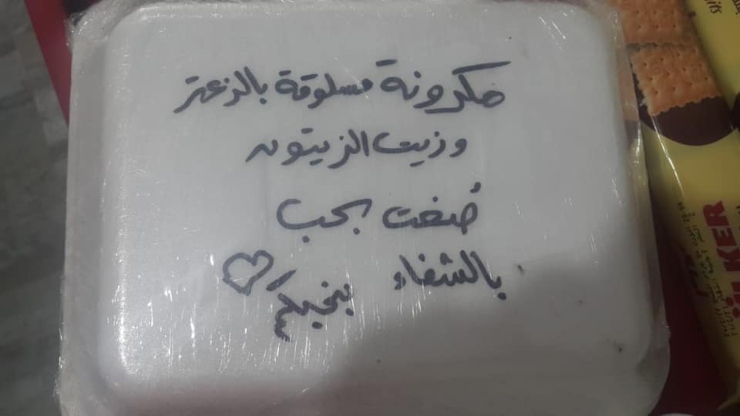 مكرونة مسلوقة بالزعتر
وزيت الزيتون
صُنعت بحب
بالشفاء بنحبكم
ÜLKER